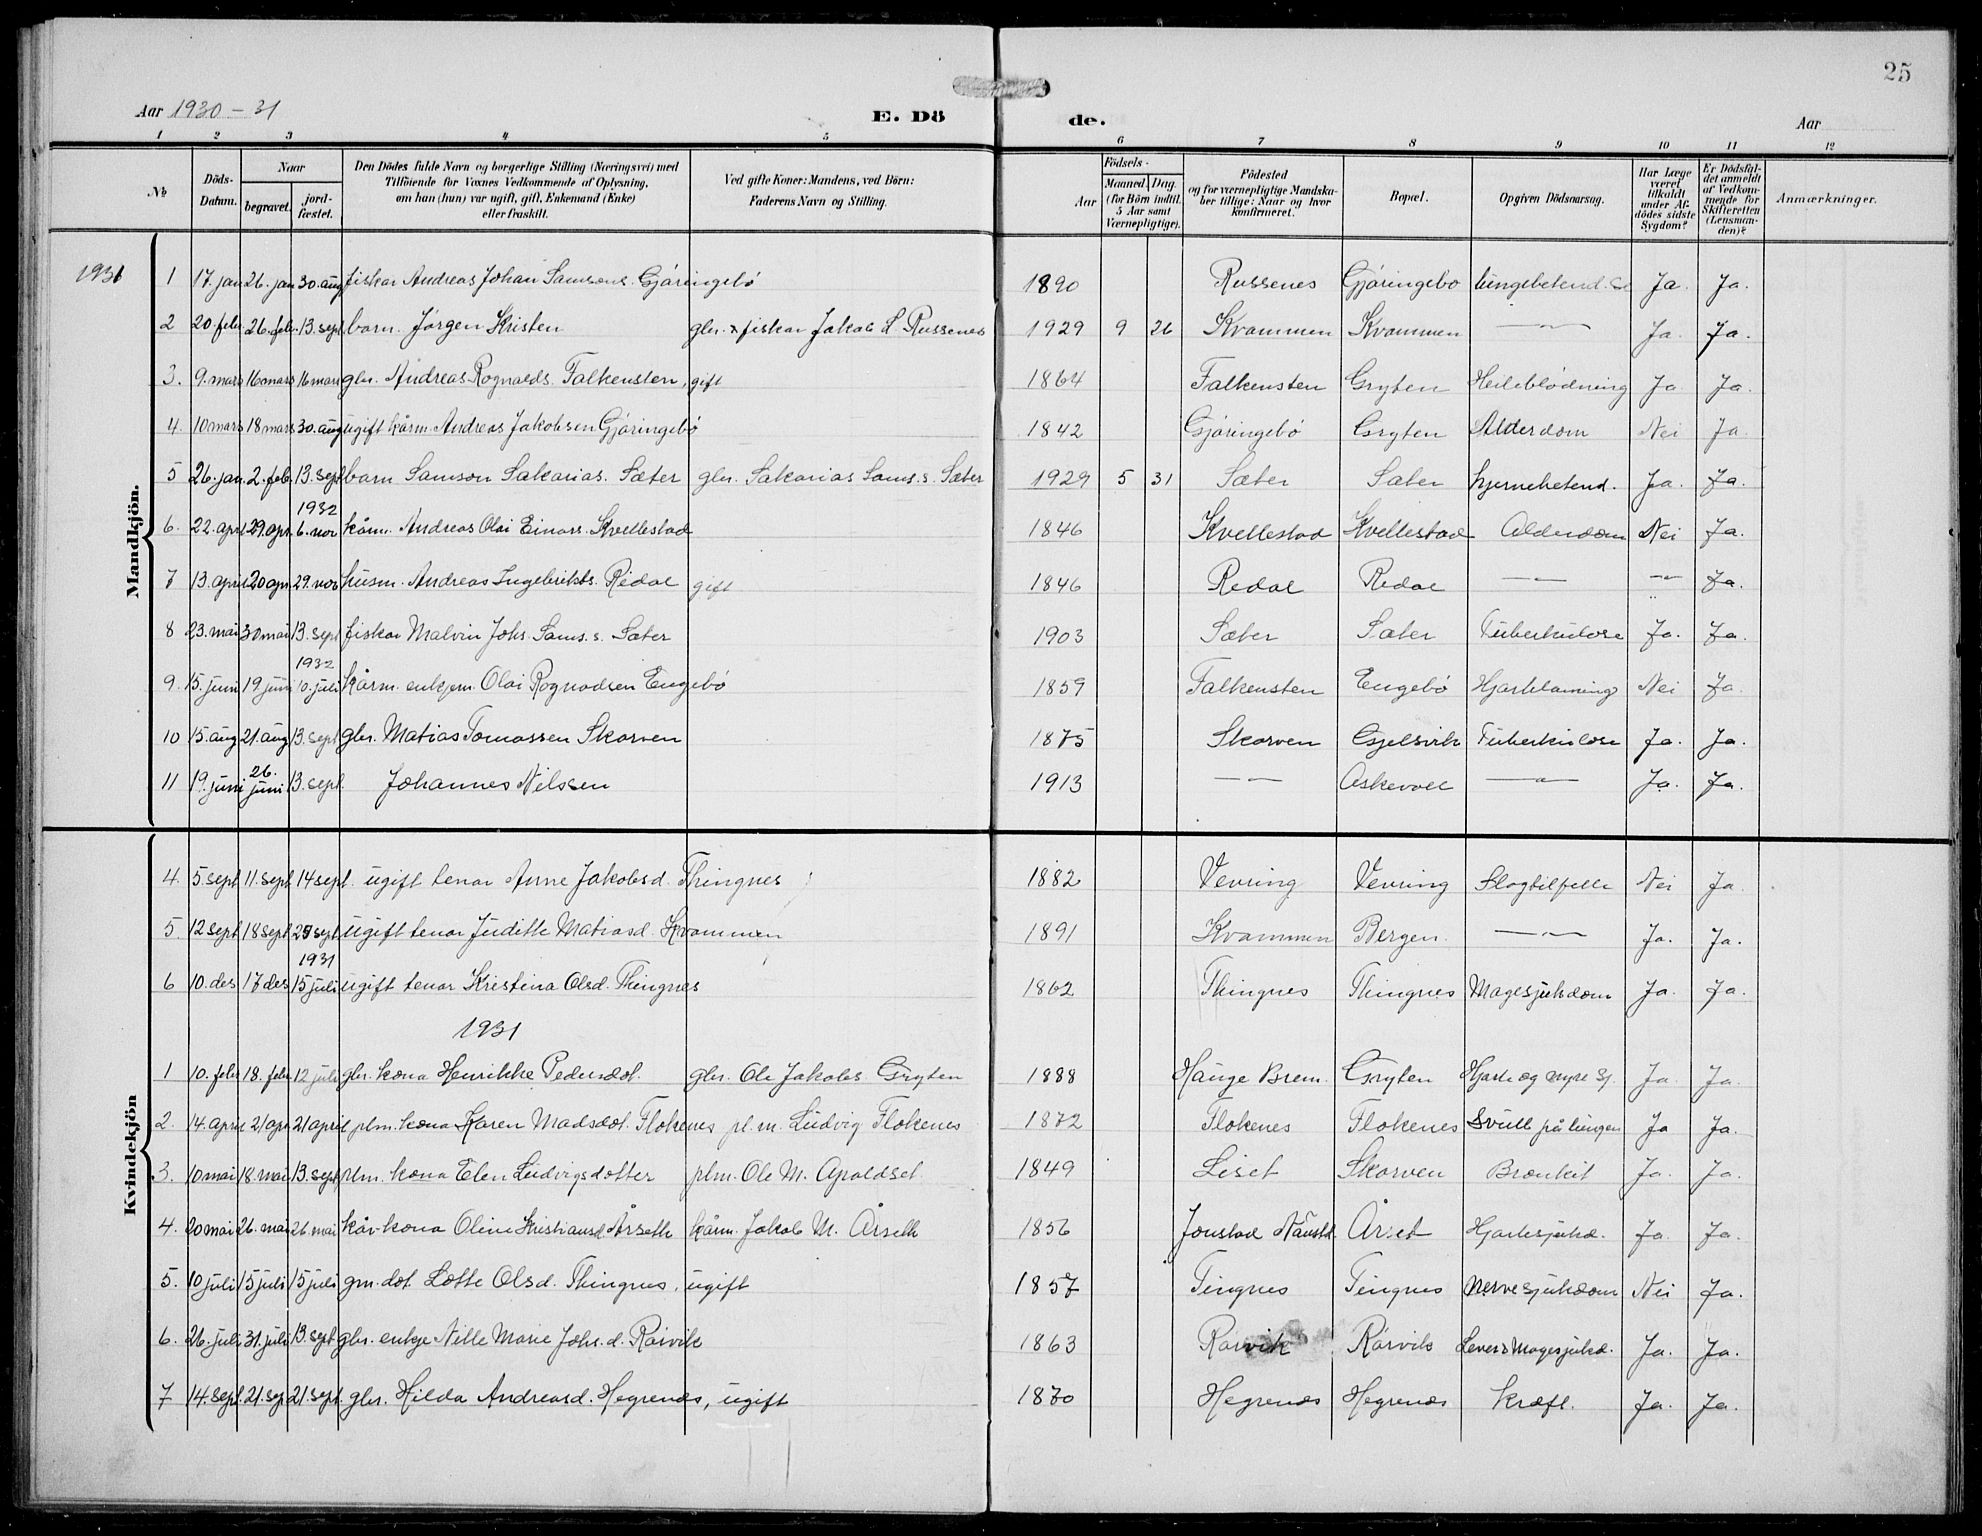 25
Aar 1930 - 31
E. Dö de.
Aar
1 2 3 4 5 6 7 8 9 10 11 12
№
Döds-Datum.
Naar
begravet.
jord-fæstet.
Den Dödes fulde Navn og borgerlige Stilling (Næringsvei) med
Tilföiende for Voxnes Vedkommende af Oplysning,
om han (hun) var ugift, gift, Enkemand (Enke)
eller fraskilt.
Ved gifte Koner: Mandens, ved Börn:
Faderens Navn og Stilling.
Födsels-
Aar
Maaned. Dag.
(for Börn indtil
5 Aar samt
Værnepligtige).
Födested
og for værnepligtige Mandska-
ber tillige: Naar og hvor
konfirmeret.
Bopæl.
Opgiven Dödsaarsag.
Har Læge
været
tilkaldt
under Af-
dödes sidste
Sygdom?
Er Dödsfal-
det anmeldt
af Vedkom-
mende for
Skifteretten
(Lensman-
den)?
Anmærkninger.
Mandkjön.
1931 1 17. jan 26. jan 30. aug fiskar Andreas Johan Samsons. Gjøringebø 1890 Russenes Gjøringebø lungebetend. Ja. Ja.
2 20. febr 26. feb. 13. sept barn. Jørgen Kristen gbr. x fiskar Jakob L. Russenes 1929 9 26 Kvammen Kvammen —"— Ja. Ja.
3. 9. mars 16 mars 16 mars gbr. Andreas Rognalds. Falkensten, gift 1864 Falkensten Gryten Heileblødning Ja Ja.
4. 10 mars 18 mars 30. aug ugift kårm. Andreas Jakobsen Gjøringebø 1842 Gjøringebø Gryten Alderdom Nei Ja.
5 26. jan. 2. feb. 13. sept barn Samson Sakarias. Sæter gbr. Sakarias Sams. s. Sæter 1929 5 31 Sæter Sæter hjernebetend. Ja. Ja.
1932
6. 22. apr 29. apr. 6. nov kårm. Andreas Olai Einars. Kvellestad 1846 Kvellestad Kvellestad Alderdom Nei Ja.
7 13. april 20 apr. 29. nov husm. Andreas Ingebrikts. Redal gift 1846 Redal Redal —"— —"— Ja.
8 23. mai 30 mai 13. sept fiskar Malvin Johs. Sams. s. Sæter 1903 Sæter Sæter Tuberkulose Ja. Ja.
1932
9. 15. juni 19 juni 10. juli kårm. enkjem. Olai Rognadsen Engebø 1859 Falkensten Engebø Hjartelaming Nei Ja.
10 15. aug 21. aug 13. sept gbr. Matias Tomassen Skorven 1875 Skorven Gjelsvik Tuberkulose Ja. Ja.
11 19. juni 26. juni 13. sept. Johannes Nilssen 1913 —"— Askevoll —"— Ja. Ja.
Kvindekjön
4. 5. sept 11. sept 14 sept. ugift tenar Anne Jakobsd. Thingnes 1882 Vevring Vevring Slagtilfelle Nei Ja.
5. 12 sept 18 sept 27 sept ugift tenar Juditte Matiasd. Kvammen 1891 Kvammen Bergen. —"— Ja. Ja.
1931
6 10. des 17 des 15 juli ugift tenar Kristina Olsd. Thingnes 1862 Thingnes Thingnes Magesjukdom Ja. Ja.
1931
1 10. febr 18. feb. 12 juli gbr. kona Henrikke Pedersdot. gbr. Ole Jakobs. Gryten 1888 Hauge Brem. Gryten Hjarte og nyre sj. Ja. Ja.
2. 14. april 21 apr 21 april plm. kona Karen Madsdot. Flokenes pl. m. Ludvig Flokenes 1872 Flokenes Flokenes Svull på lungen Ja Ja.
3. 10 mai 18. mai 13. sept plm. kona Elen Ludvigsdotter plm. Ole M. Apoldset 1849 Liset Skorven Bronkit Ja. Ja.
4. 20 mai 26. mai 26. mai kårkona Oline Kristiansd. Årseth kårm. Jakob M. Årseth 1856 Jonstad Naustd. Årset Hjartesjukd. Ja. Ja.
5. 10 juli 15 juli 15 juli gm. dot. Lotte Olsd. Thingnes, ugift 1857 Tingnes Tingnes Nervesjukdom Nei Ja.
6. 26. juli 31. juli 13. sept gbr. enkje Nille Marie Johs. d. Rørvik 1863 Rørvik Rørvik Lever & Magesjukd. Ja. Ja.
7 14. sept. 21. sep 21. sept. gbr. Hilda Andreasd. Hegrenes, ugift 1870 Hegrenes Hegrenes Kræft. Ja. Ja.